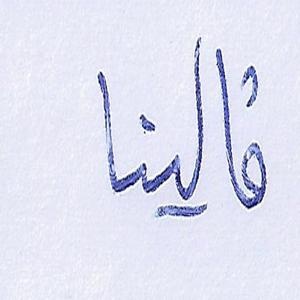 فالينا